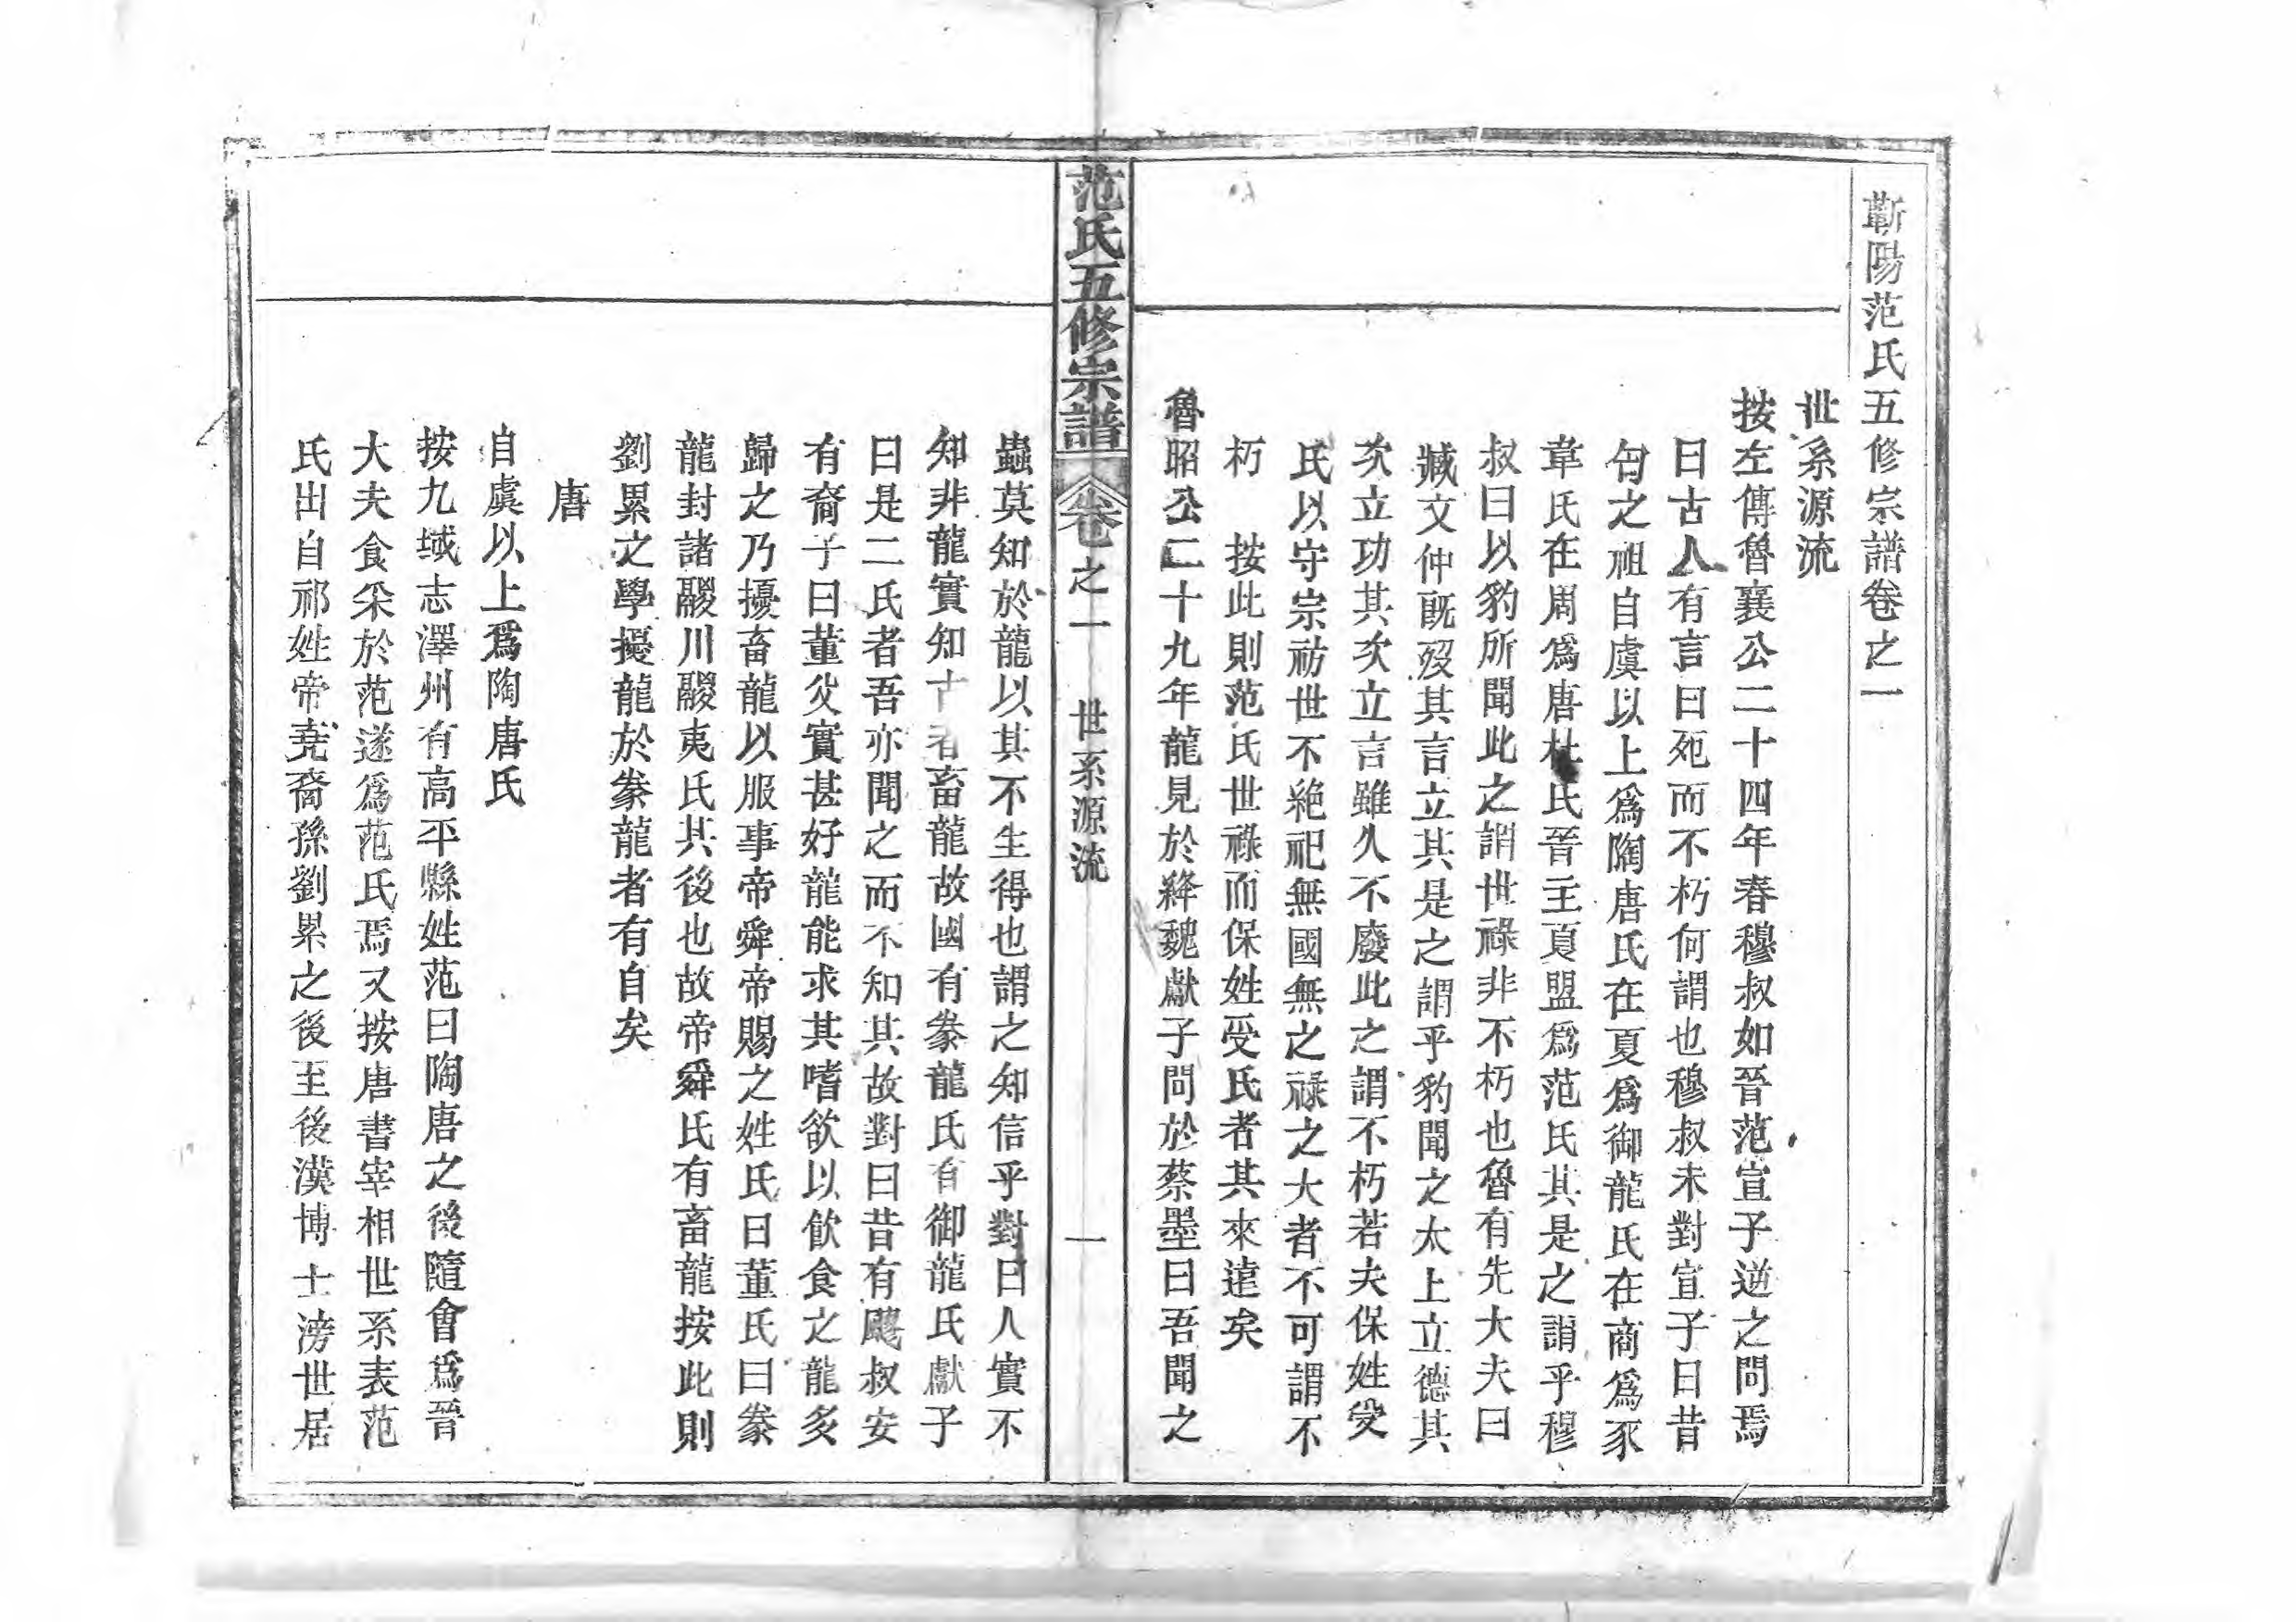 蘄陽范氏五修宗譜卷之一
世系源流
按左傳魯襄公二十四年春穆叔如晉范宣子逆之問焉
曰古人有言曰死而不朽何謂也穆叔未對宣子曰昔
匄之祖自虞以上爲陶唐氏在夏爲御龍氏在商爲豕
韋氏在周爲唐杜氏晉主夏盟爲范氏其是之謂乎穆
叔曰以豹所聞此之謂世祿非不朽也魯有先大夫曰
臧文仲既歿其言立其是之謂乎豹聞之太上立德其
次立功其次立言雖久不廢此之謂不朽若夫保姓受
氏以守宗祊世不絶祀無國無之祿之大者不可謂不
朽　按此則范氏世祿而保姓受氏者其來遠矣
魯昭公二十九年龍見於絳魏獻子問於蔡墨曰吾聞之
范氏五修宗譜　卷之一　世系源流　一
蟲莫知於龍以其不生得也謂之知信乎對曰人實不
知非龍實知古者畜龍故國有豢龍氏有御龍氏獻子
曰是二氏者吾亦聞之而不知其故對曰昔有飂叔安
有裔子曰董父實甚好龍能求其嗜欲以飲食之龍多
歸之乃擾畜龍以服事帝舜帝賜之姓氏曰董氏曰豢
龍封諸鬷川鬷夷氏其後也故帝舜氏有畜龍按此則
劉累之學擾龍於豢龍者有自矣
唐
自虞以上爲陶唐氏
按九域志澤州有高平縣姓范曰陶唐之後隨會爲晉
大夫食采於范遂爲范氏焉又按唐書宰相世系表范
氏出自祁姓帝堯裔孫劉累之後至後漢博士滂世居